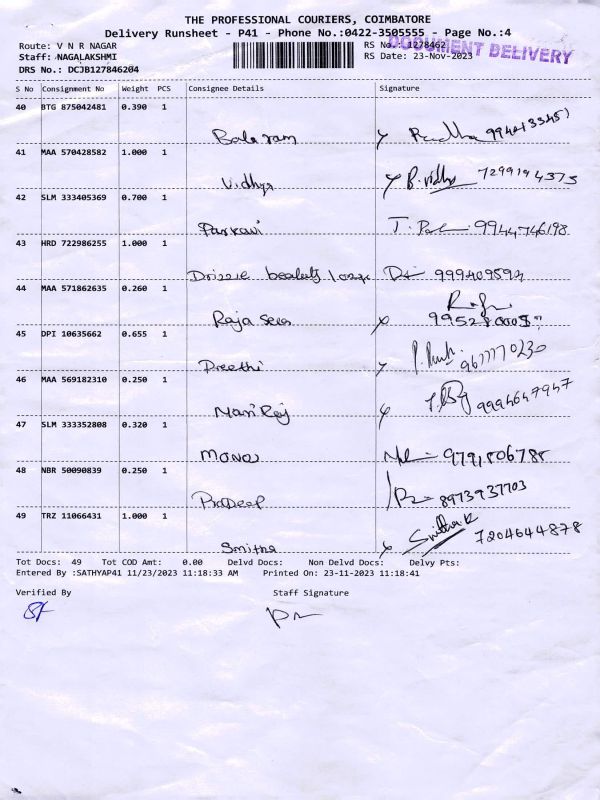 THE PROFESSIONAL COURIERS, COIMBATORE
Delivery Runsheet - P41 - Phone No.:0422-3505555 - Page No.:4
Route: V N R NAGAR RS No.: 1278462
DOCUMENT DELIVERY
Staff: NAGALAKSHMI RS Date: 23-Nov-2023
DRS No.: DCJB127846204
S No Consignment No Weight PCS Consignee Details Signature
40 BTG 875042481 0.390 1
Balaram Radha
41 MAA 570428582 1.000 1
Vidhya B. Vidhya 7299194373
42 SLM 333405369 0.700 1
Parkavi 9944746198
43 HRD 722986255 1.000 1
Drizzle 999409594
44 MAA 571862635 0.260 1
Raja
45 DPI 10635662 0.655 1
Preethi 9677770230
46 MAA 569182310 0.250 1
Mani Raj 9994647947
47 SLM 333352808 0.320 1
Mano 9791806788
48 NBR 50090839 0.250 1
Pradeep 8973937703
49 TRZ 11066431 1.000 1
Smitha Smitha K 7204644878
Tot Docs: 49 Tot COD Amt: 0.00 Delvd Docs: Non Delvd Docs: Delvy Pts:
Entered By :SATHYAP41 11/23/2023 11:18:33 AM Printed On: 23-11-2023 11:18:41
Verified By Staff Signature